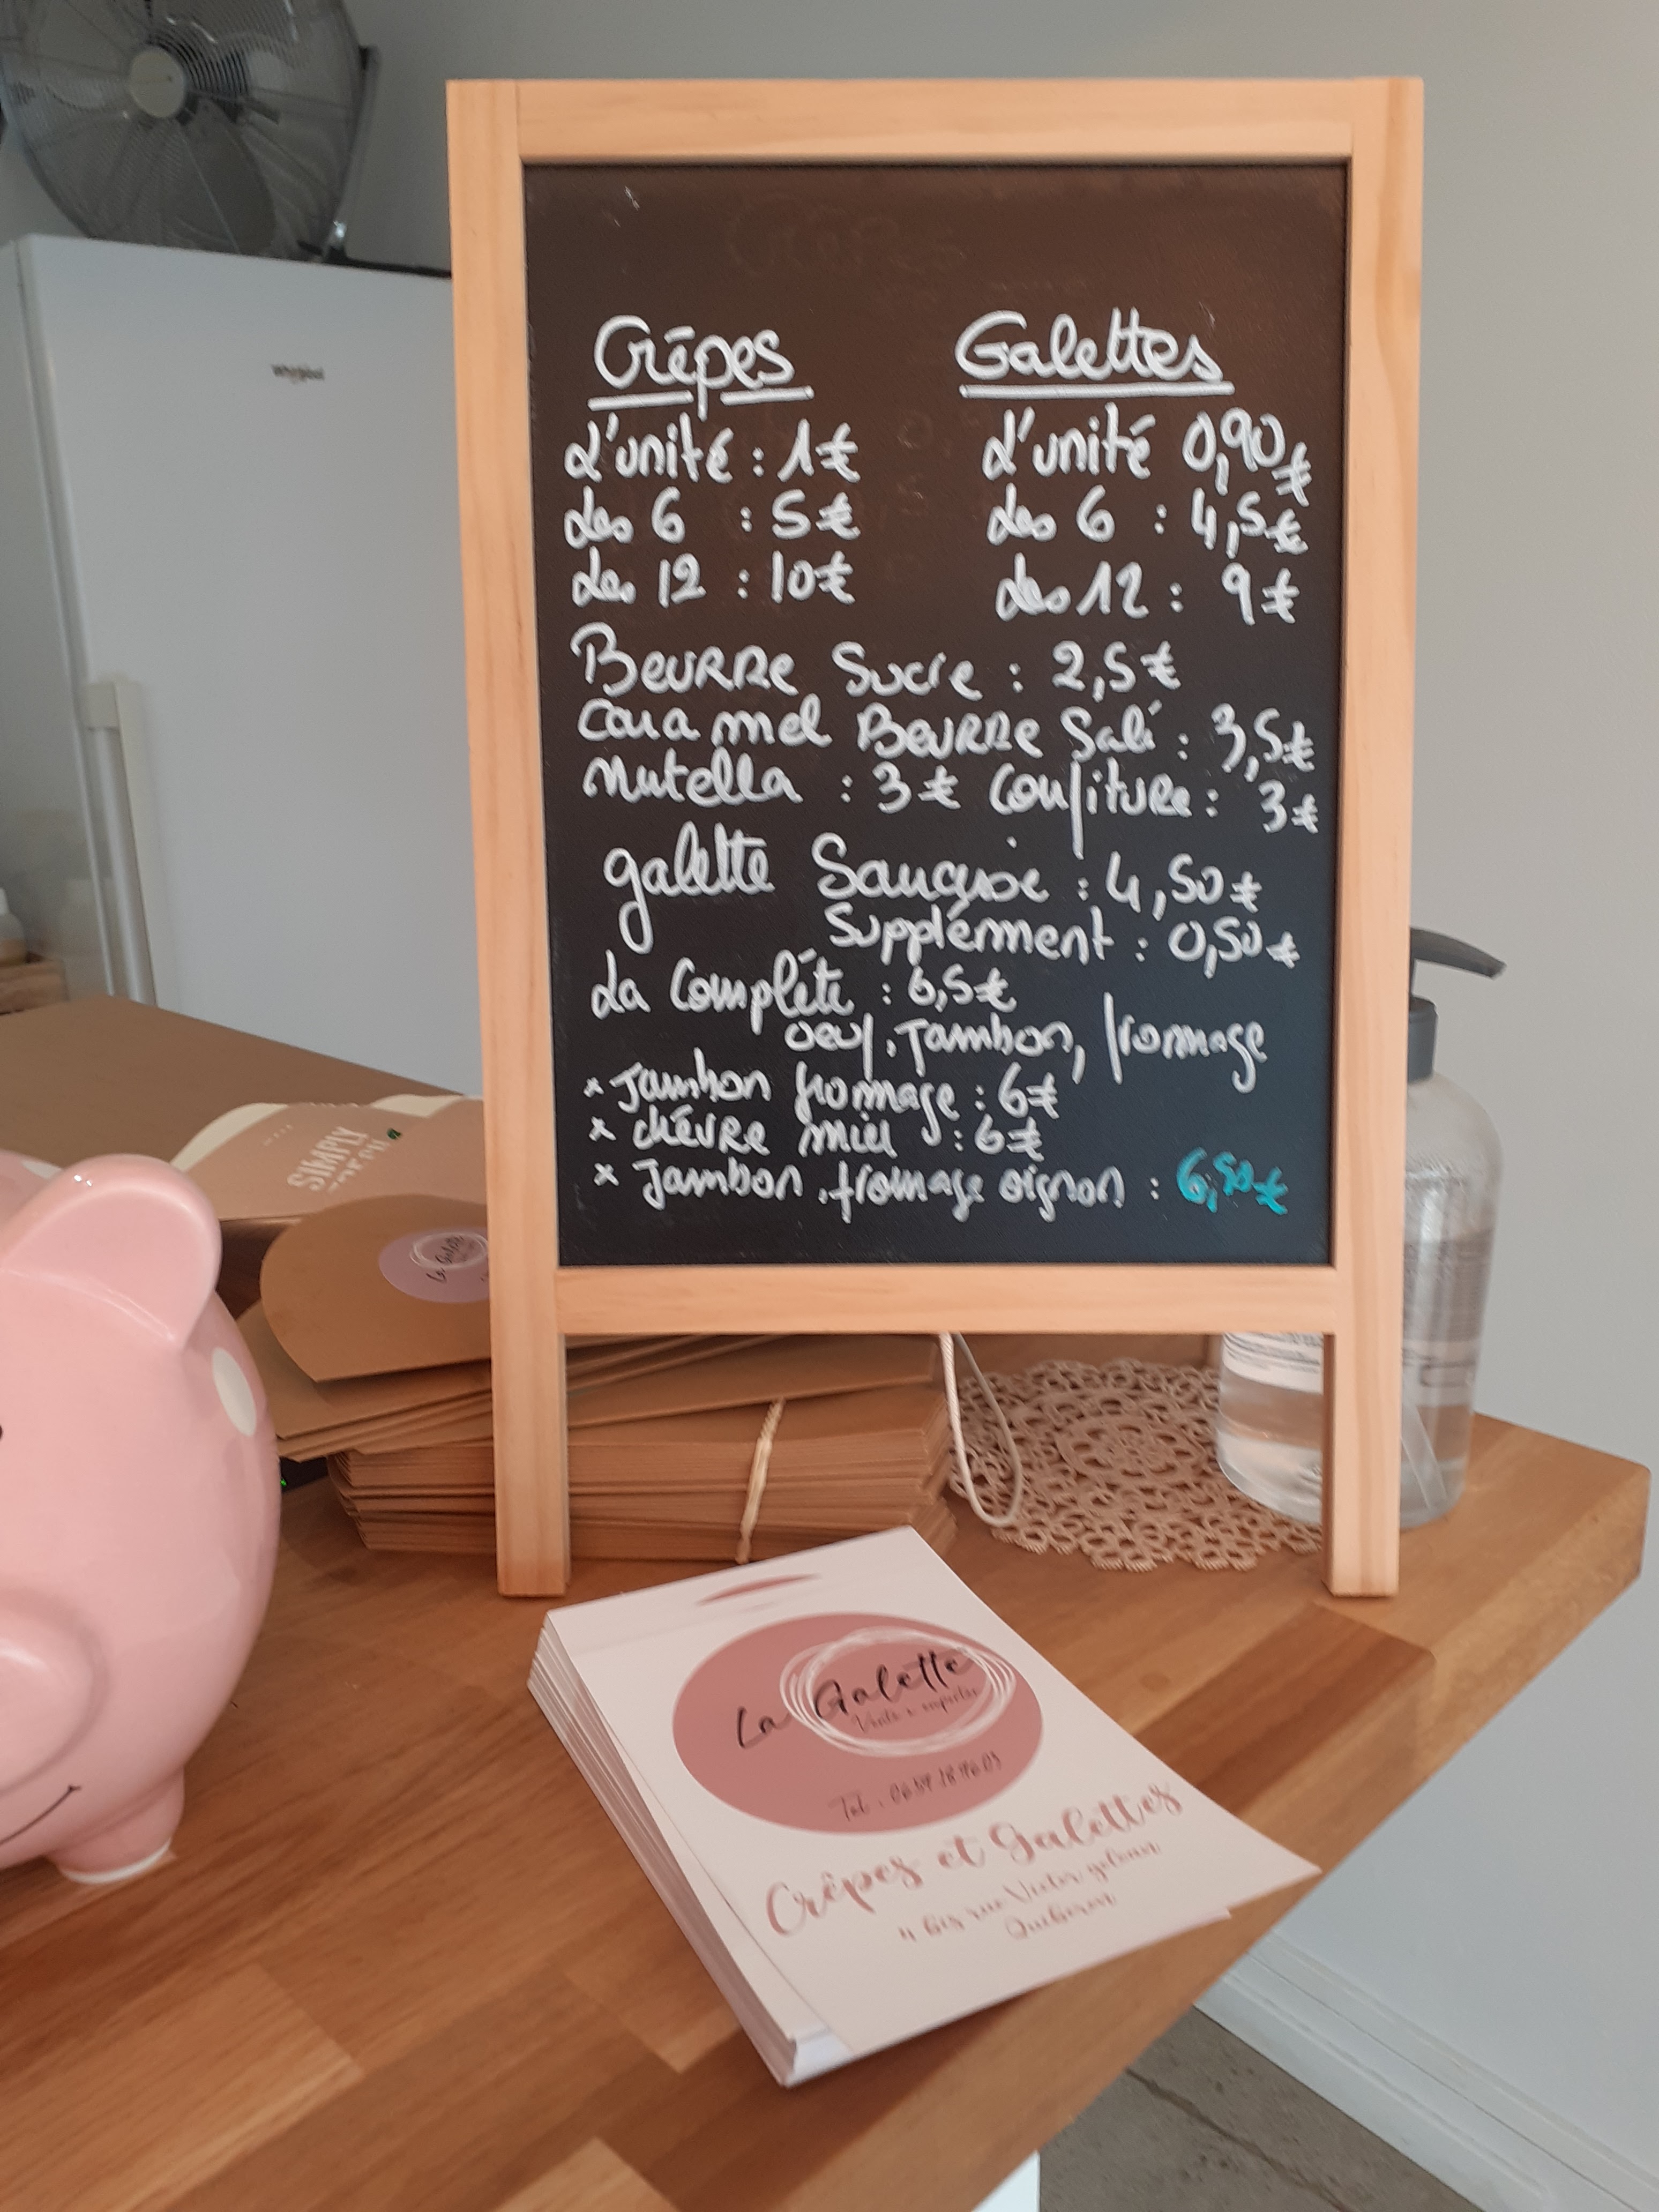 Whirlpool
Crêpes
L'unité : 1€
Les 6 : 5€
Les 12 : 10€
Galettes
L'unité 0,90€
Les 6 : 4,5€
Les 12 : 9€
Beurre Sucre : 2,5€
Caramel Beurre Salé : 3,5€
Nutella : 3€ Confiture : 3€
galette Saucisse : 4,50€
Supplément : 0,50€
La Complète : 6,5€
oeuf, Jambon, fromage
x Jambon fromage : 6€
x chèvre miel : 6€
x Jambon, fromage oignon : 6,50€
SIMPLY
La Galette
La Galette
Vente à emporter
Tel :
Crêpes et Galettes
4 bis rue Victor golvan
Quiberon